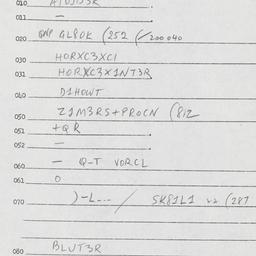 010
011 —
020 GLROK (252 (/200040
030 HORXC3XCI
031 HORXC3X1NT3R
040 D1HOWT
050 Z1M3RS+PROCN (812
051 +QR
052 —
060 — Q-T VORCL
061 O
070 )-L--- / SK81L1 (287
080 BLUT3R